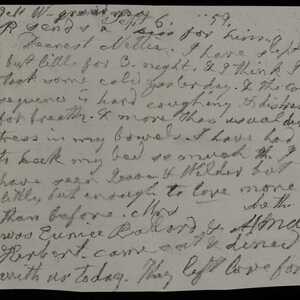 Sept 6. "59"
R sends a kiss for him
Dearest Nellie. I have slept
but little for 3. night. & I think I
took some cold yesterday. & the con
sequence is hard coughing & distress
for breath. & more than usual dis
tress in my bowels. I have had
to keep my bed so much th I
have seen Leave & Wilder but
little, but enough to love more
than before. Mrs
was Eunice Ballord &
Herbert. came out & dined
with us today. They left love for